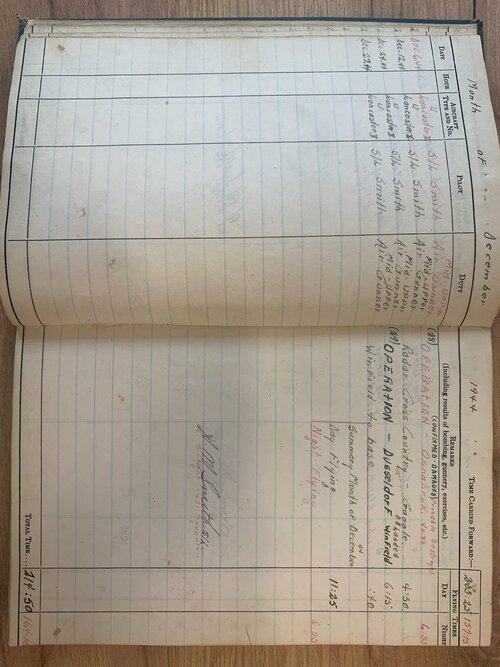 Month of December 1944
TIME CARRIED FORWARD:—
203·25 157·15
DATE HOUR AIRCRAFT TYPE AND NO. PILOT DUTY REMARKS (Including results of bombing, gunnery, exercises, etc.) FLYING TIMES DAY NIGHT
Dec. 6.44 Lancaster S/L Smith Mid-Upper Air Gunner (28) OPERATION Osnabruk 6.55
(CONFIRMED DAMAGED)
Dec. 12.44 Lancaster S/L Smith Mid-Upper Air Gunner Radar Cross Country 4:30
Dec. 24.44 Lancaster S/L Smith Mid-Upper Air Gunner (29) OPERATION — DUSSELDORF landed WINFIELD 6:15
Dec. 29.44 Lancaster S/L Smith Mid-Upper Air Gunner Winfield to base :40
Summary Month of December 44
Day Flying 11:25
Night Flying 6:55
TOTAL TIME 214:50